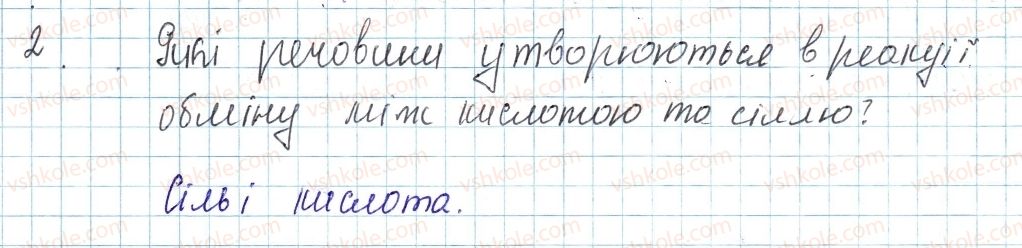 2. Які речовини утворюються в реакції
обміну між кислотою та сіллю?
Сіль і кислота.